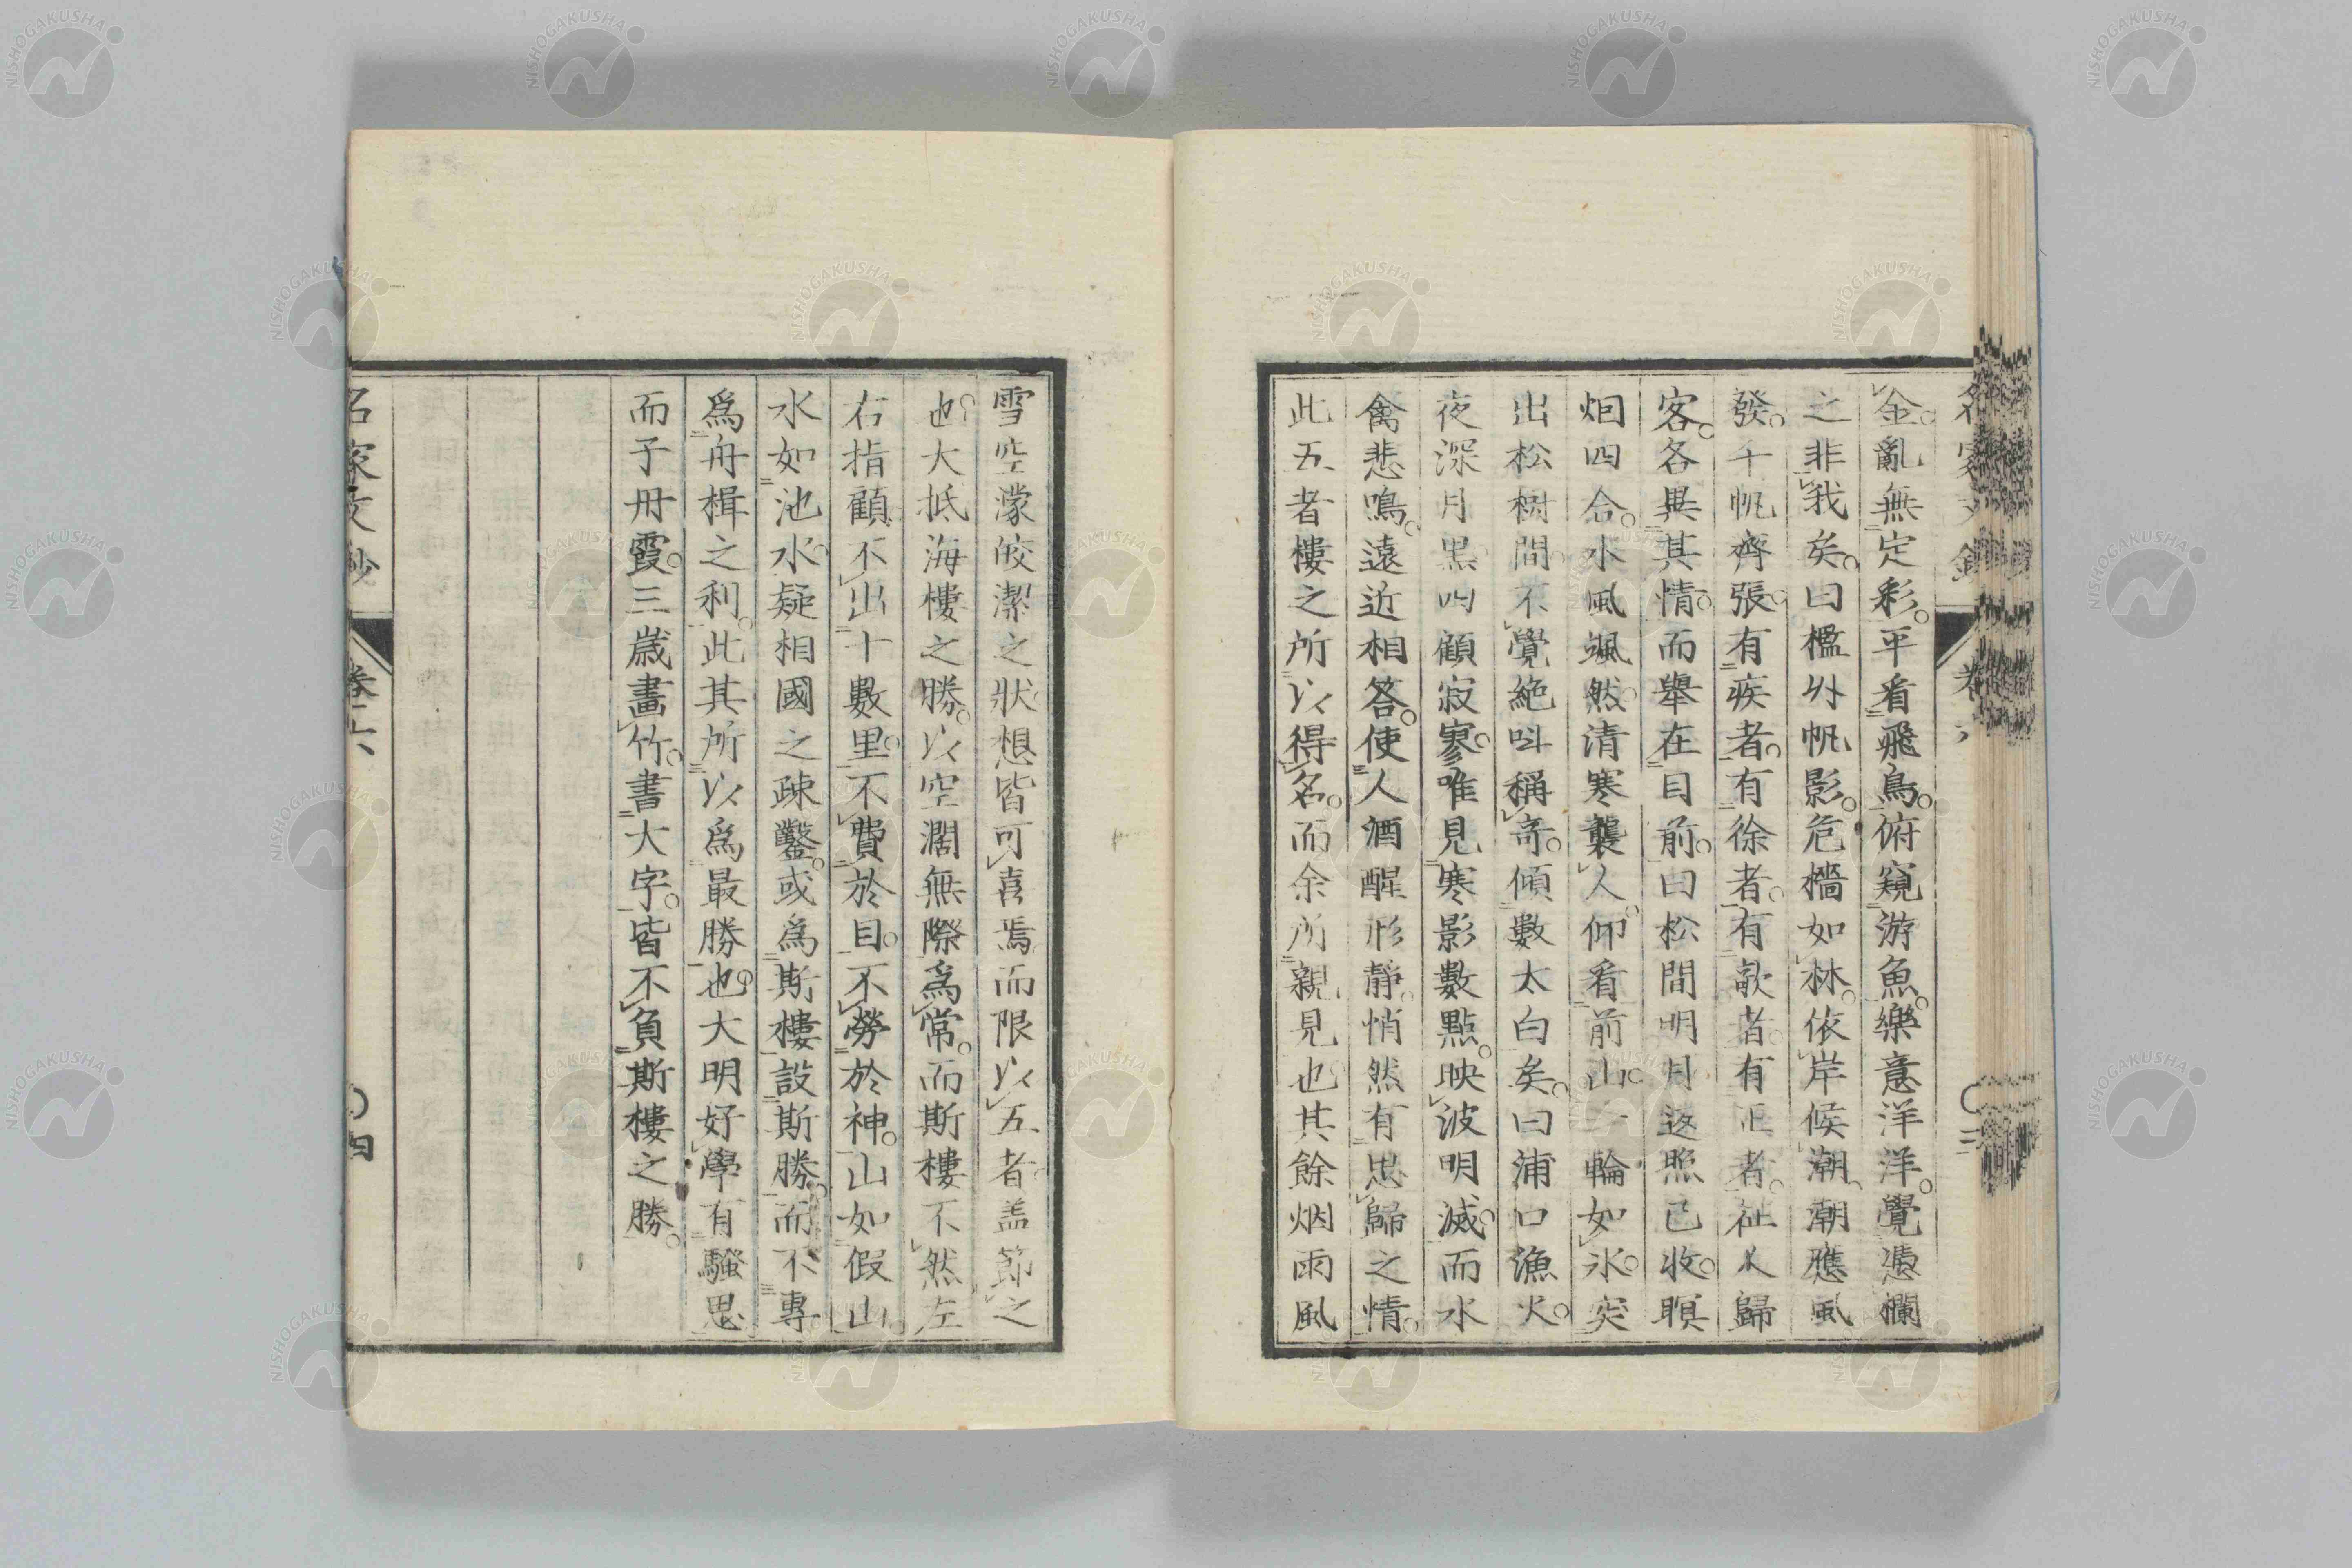 金亂無定彩。平看飛鳥。俯窺游魚。樂意洋洋。覺憑欄
之非我矣。曰檻外帆影。危檣如林。依岸候潮。潮應風
發。千帆齊張。有疾者。有徐者。有歌者。有者。征人歸
客。各異其情。而舉在目前。曰松間明月。返照已收。暝
烟四合。水風颯然。清寒襲人。仰看前山。一輪如氷。突
出松樹間。不覺絶叫稱奇。傾數太白矣。曰浦口漁火。
夜深月黒。四顧寂寥。唯見寒影數點。映波明滅。而水
禽悲鳴。遠近相答。使人酒醒形靜。悄然有思歸之情。
此五者樓之所以得名。而余所親見也。其餘烟雨風
雪空濛皎潔之状。想皆可喜焉。而限以五者。盖節之
也。大抵海樓之勝。以空濶無際爲常。而斯樓不然。左
右指顧。不出十數里。不費於目。不勞於神。山如假山。
水如池水。疑相國之疎鑿。或爲斯樓設斯勝。而不專
爲舟楫之利。此其所以爲最勝也。大明好學有騷思
而子丹霞。三歳畫竹。書大字。皆不負斯樓之勝。
名家文鈔
卷六
〇四